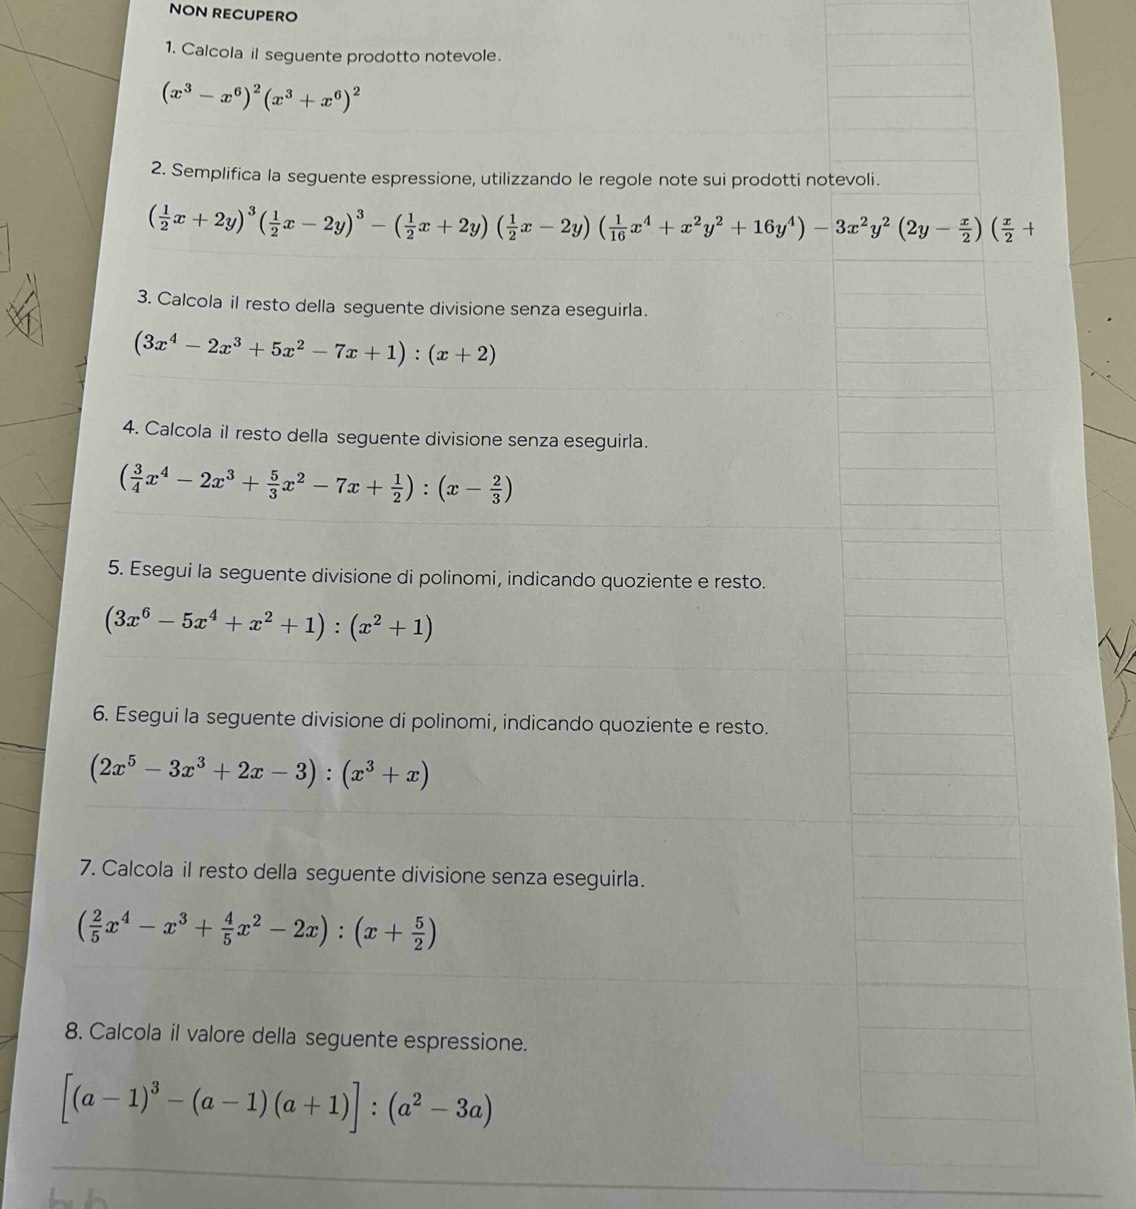 NON RECUPERO
1. Calcola il seguente prodotto notevole.
(x³ − x⁶)² (x³ + x⁶)²
2. Semplifica la seguente espressione, utilizzando le regole note sui prodotti notevoli.
(1/2 x + 2y)³ (1/2 x − 2y)³ − (1/2 x + 2y) (1/2 x − 2y) (1/16 x⁴ + x²y² + 16y⁴) − 3x²y² (2y − x/2) (x/2 +
3. Calcola il resto della seguente divisione senza eseguirla.
(3x⁴ − 2x³ + 5x² − 7x + 1) : (x + 2)
4. Calcola il resto della seguente divisione senza eseguirla.
(3/4 x⁴ − 2x³ + 5/3 x² − 7x + 1/2) : (x − 2/3)
5. Esegui la seguente divisione di polinomi, indicando quoziente e resto.
(3x⁶ − 5x⁴ + x² + 1) : (x² + 1)
6. Esegui la seguente divisione di polinomi, indicando quoziente e resto.
(2x⁵ − 3x³ + 2x − 3) : (x³ + x)
7. Calcola il resto della seguente divisione senza eseguirla.
(2/5 x⁴ − x³ + 4/5 x² − 2x) : (x + 5/2)
8. Calcola il valore della seguente espressione.
[(a − 1)³ − (a − 1) (a + 1)] : (a² − 3a)